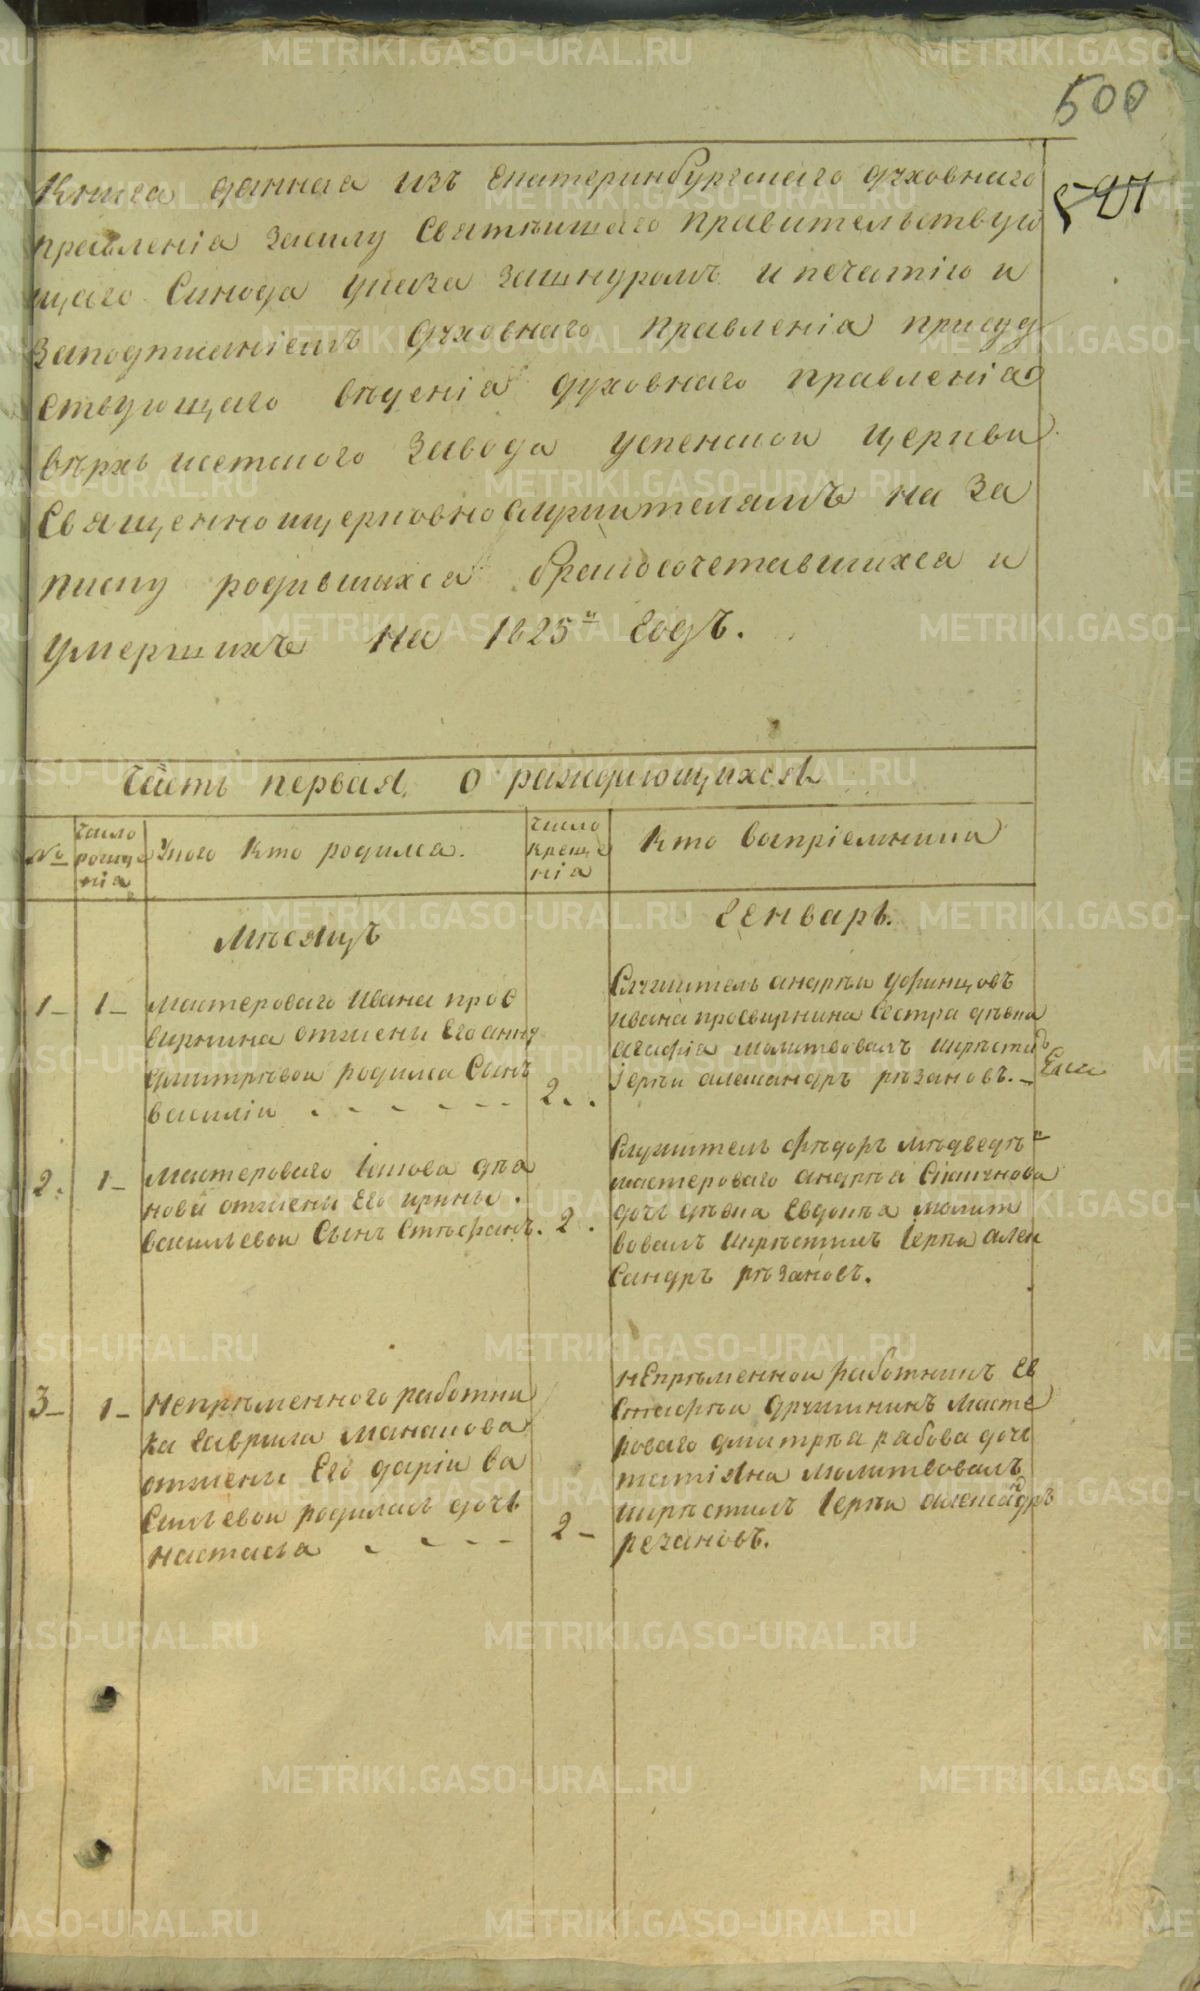 500
Книга данная изъ Екатеринбургскаго духовнаго
правленія засилу Святѣишаго Правительствую
щаго Синода указа зашнуромъ и печатію и
заподписаніемъ духовнаго Правленія присуд
ствующаго вѣденія духовнаго правленія
вѣрхъ исетскаго завода успенскои церкви
Священноицерковнослужителямъ на за
писку родившихся бракосочетавшихся и
умершихъ на 1825й годъ.
Часть первая, о раждающихся
№ число рожде нія Укого кто родился. число креще нія Кто воспріемники
Мѣсяцъ Генварь.
1 1 Мастероваго Ивана Прос
вирнина отжены Его анны
дмитрѣвои родился Сынъ
василіи 2.
Служитель андрѣи уфинцовъ
ивана просвирнина Сестра дѣвка
агафіа молитвовалъ икрѣстилъ
Іерѣи александръ рѣзановъ.
2. 1 Мастероваго
отжены Его ирины
васильевои Сынъ Стѣфанъ. 2.
Служитель фѣдоръ
мастероваго андрѣа
дочь дѣвка Евдокѣа молит
вовалъ икрѣстилъ Іерѣи алек
сандръ рѣзановъ.
3 1 Непрѣменного работни
ка гаврила
отжены Его даріи ва
сильевои родилась дочь
настасьа 2
Непрѣменнои работникъ Ев
стафѣи Дружининъ масте
роваго дмитрѣа рабова дочь
татіяна молитвовалъ
икрѣстилъ Іерѣи александръ
резановъ.
METRIKI.GASO-URAL.RU